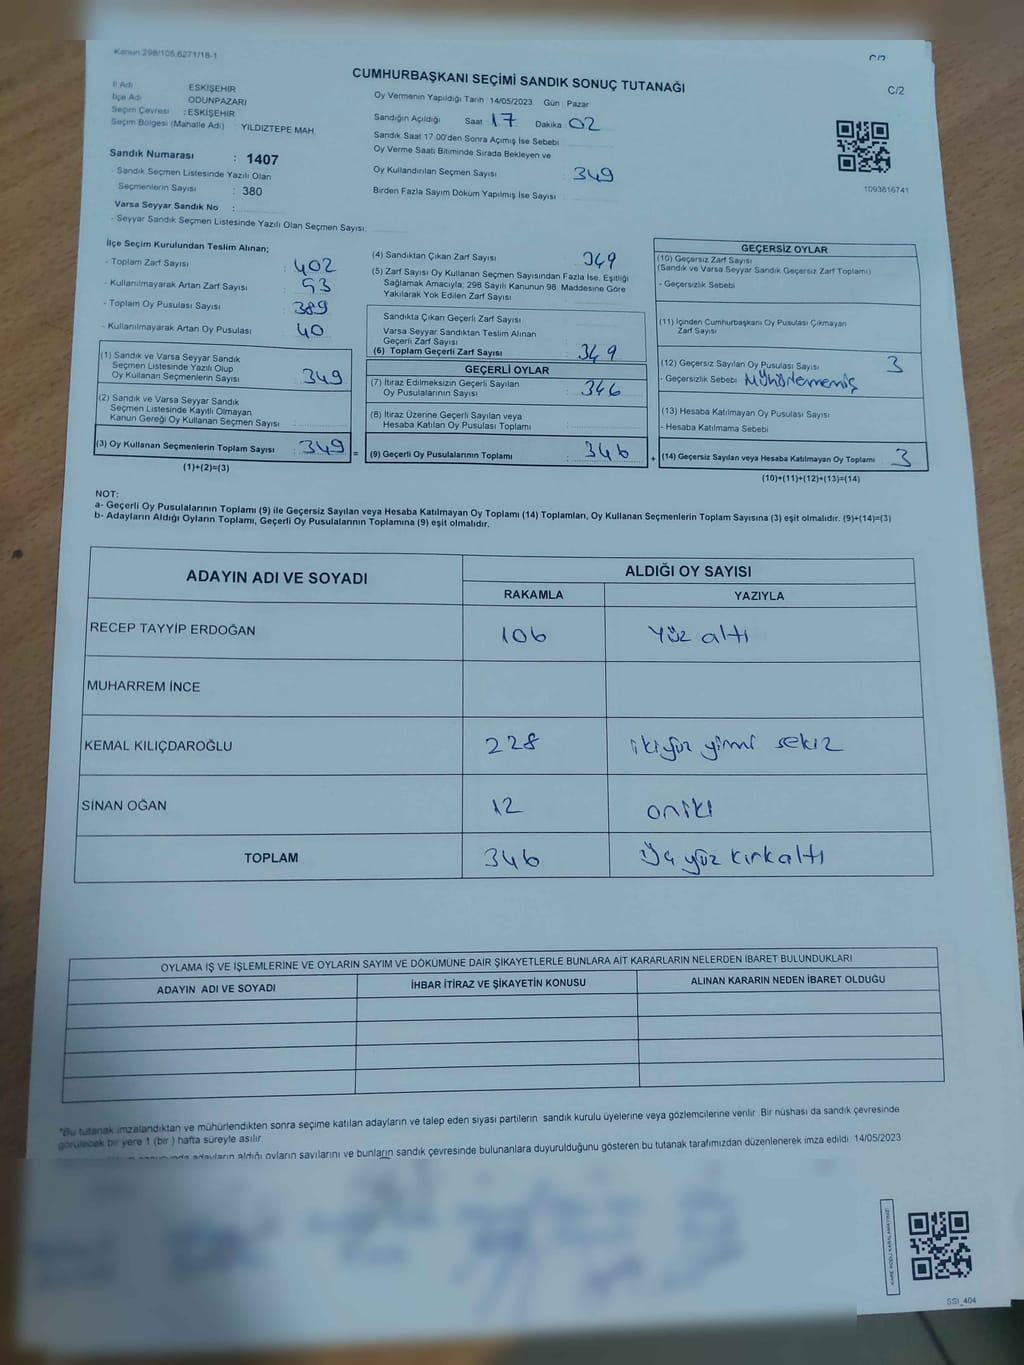 Kanun:298/105,6271/18-1
C/2
CUMHURBAŞKANI SEÇİMİ SANDIK SONUÇ TUTANAĞI
C/2
İl Adı ESKİŞEHİR
İlçe Adı ODUNPAZARI
Seçim Çevresi : ESKİŞEHİR
Seçim Bölgesi (Mahalle Adı) : YILDIZTEPE MAH
Oy Vermenin Yapıldığı Tarih 14/05/2023 Gün : Pazar
Sandığın Açıldığı Saat 17 Dakika 02
Sandık Saat 17 00'den Sonra Açımış İse Sebebi
Oy Verme Saati Bitiminde Sırada Bekleyen ve
Oy Kullandırılan Seçmen Sayısı 349
Birden Fazla Sayım Döküm Yapılmış İse Sayısı
1093816741
Sandık Numarası : 1407
- Sandık Seçmen Listesinde Yazılı Olan
Seçmenlerin Sayısı : 380
Varsa Seyyar Sandık No :
- Seyyar Sandık Seçmen Listesinde Yazılı Olan Seçmen Sayısı:
İlçe Seçim Kurulundan Teslim Alınan;
- Toplam Zarf Sayısı : 402
- Kullanılmayarak Artan Zarf Sayısı : 53
- Toplam Oy Pusulası Sayısı : 389
- Kullanılmayarak Artan Oy Pusulası : 40
(1) Sandık ve Varsa Seyyar Sandık
Seçmen Listesinde Yazılı Olup
Oy Kullanan Seçmenlerin Sayısı : 349
(2) Sandık ve Varsa Seyyar Sandık
Seçmen Listesinde Kayıtlı Olmayan
Kanun Gereği Oy Kullanan Seçmen Sayısı :
(3) Oy Kullanan Seçmenlerin Toplam Sayısı : 349 =
(1)+(2)=(3)
(4) Sandıktan Çıkan Zarf Sayısı 349
(5) Zarf Sayısı Oy Kullanan Seçmen Sayısından Fazla İse, Eşitliği
Sağlamak Amacıyla; 298 Sayılı Kanunun 98. Maddesine Göre
Yakılarak Yok Edilen Zarf Sayısı
Sandıkta Çıkan Geçerli Zarf Sayısı
Varsa Seyyar Sandıktan Teslim Alınan
Geçerli Zarf Sayısı
(6) Toplam Geçerli Zarf Sayısı : 349
GEÇERLİ OYLAR
(7) İtiraz Edilmeksizin Geçerli Sayılan
Oy Pusulalarının Sayısı : 346
(8) İtiraz Üzerine Geçerli Sayılan veya
Hesaba Katılan Oy Pusulası Toplamı
(9) Geçerli Oy Pusulalarının Toplamı : 346 +
GEÇERSİZ OYLAR
(10) Geçersiz Zarf Sayısı
(Sandık ve Varsa Seyyar Sandık Geçersiz Zarf Toplamı)
- Geçersizlik Sebebi
(11) İçinden Cumhurbaşkanı Oy Pusulası Çıkmayan
Zarf Sayısı
(12) Geçersiz Sayılan Oy Pusulası Sayısı 3
- Geçersizlik Sebebi Mühürlememiş
(13) Hesaba Katılmayan Oy Pusulası Sayısı
- Hesaba Katılmama Sebebi
(14) Geçersiz Sayılan veya Hesaba Katılmayan Oy Toplamı 3
(10)+(11)+(12)+(13)=(14)
NOT:
a- Geçerli Oy Pusulalarının Toplamı (9) ile Geçersiz Sayılan veya Hesaba Katılmayan Oy Toplamı (14) Toplamları, Oy Kullanan Seçmenlerin Toplam Sayısına (3) eşit olmalıdır. (9)+(14)=(3)
b- Adayların Aldığı Oyların Toplamı, Geçerli Oy Pusulalarının Toplamına (9) eşit olmalıdır.
ADAYIN ADI VE SOYADI ALDIĞI OY SAYISI
RAKAMLA YAZIYLA
RECEP TAYYİP ERDOĞAN 106 Yüz altı
MUHARREM İNCE
KEMAL KILIÇDAROĞLU 228 ikiyüz yirmi sekiz
SİNAN OĞAN 12 oniki
TOPLAM 346 Üç yüz kırkaltı
OYLAMA İŞ VE İŞLEMLERİNE VE OYLARIN SAYIM VE DÖKÜMÜNE DAİR ŞİKAYETLERLE BUNLARA AİT KARARLARIN NELERDEN İBARET BULUNDUKLARI
ADAYIN ADI VE SOYADI İHBAR İTİRAZ VE ŞİKAYETİN KONUSU ALINAN KARARIN NEDEN İBARET OLDUĞU
*Bu tutanak imzalandıktan ve mühürlendikten sonra seçime katılan adayların ve talep eden siyasi partilerin sandık kurulu üyelerine veya gözlemcilerine verilir Bir nüshası da sandık çevresinde
görülecek bir yere 1 (bir ) hafta süreyle asılır.
adayların aldığı oyların sayılarını ve bunların sandık çevresinde bulunanlara duyurulduğunu gösteren bu tutanak tarafımızdan düzenlenerek imza edildi 14/05/2023
SSI_404